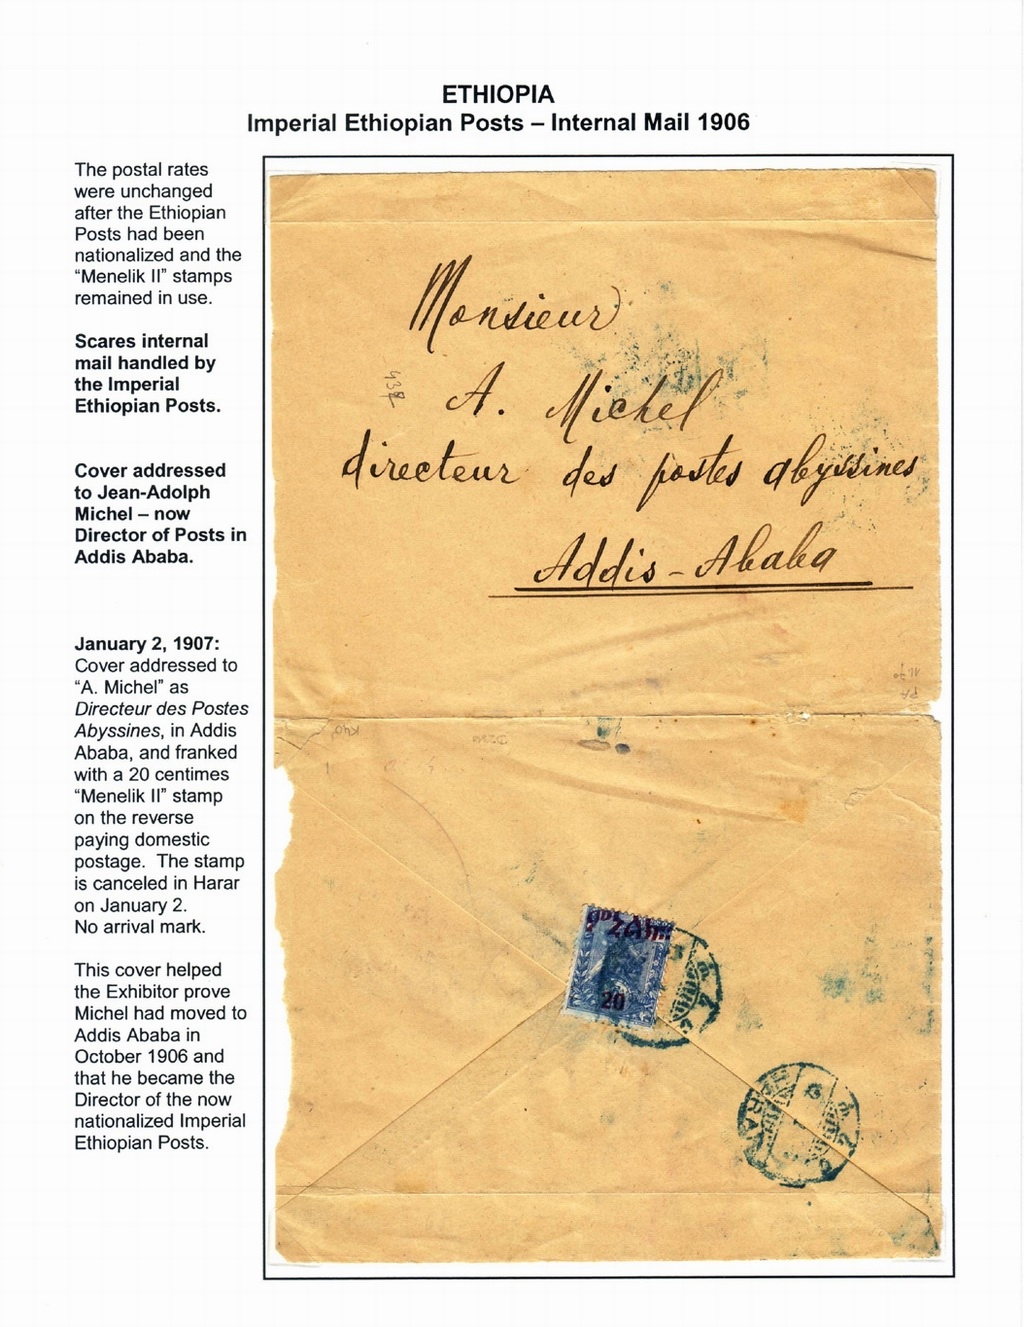 ETHIOPIA
Imperial Ethiopian Posts – Internal Mail 1906
The postal rates
were unchanged
after the Ethiopian
Posts had been
nationalized and the
“Menelik II” stamps
remained in use.
Scares internal
mail handled by
the Imperial
Ethiopian Posts.
Cover addressed
to Jean-Adolph
Michel – now
Director of Posts in
Addis Ababa.
January 2, 1907:
Cover addressed to
“A. Michel” as
Directeur des Postes
Abyssines, in Addis
Ababa, and franked
with a 20 centimes
“Menelik II” stamp
on the reverse
paying domestic
postage. The stamp
is canceled in Harar
on January 2.
No arrival mark.
This cover helped
the Exhibitor prove
Michel had moved to
Addis Ababa in
October 1906 and
that he became the
Director of the now
nationalized Imperial
Ethiopian Posts.
Monsieur
A. Michel
directeur des postes abyssines
Addis-Ababa
20